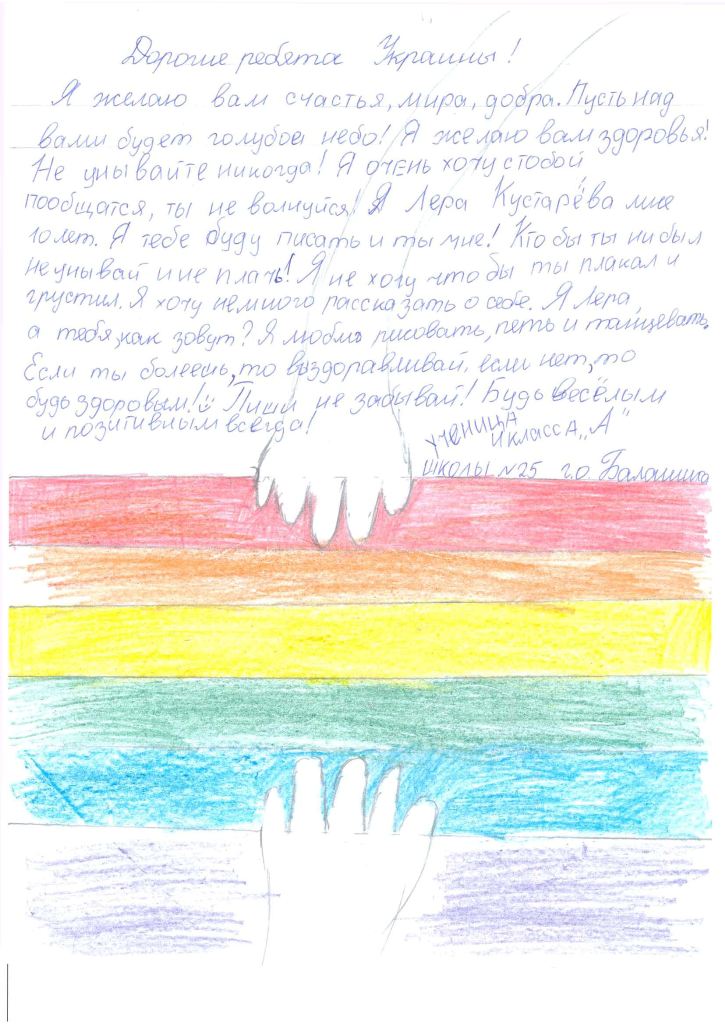 Дорогие ребята Украины!
Я желаю вам счастья, мира, добра. Пусть над
вами будет голубое небо! Я желаю вам здоровья!
Не унывайте никогда! Я очень хочу стобой
пообщатся, ты не волнуйся! Я Лера Кустарёва мне
10 лет. Я тебе буду писать и ты мне! Кто бы ты ни был
не унывай и не плачь! Я не хочу что бы ты плакал и
грустил. Я хочу немного рассказать о себе. Я Лера,
а тебя, как зовут? Я люблю рисовать, петь и танцевать.
Если ты болеешь, то выздоравливай, если нет, то
будь здоровым! Пиши не забывай! Будь весёлым
и позитивным всегда!
ученица
4 класса „А"
школы №25 г.о. Балашиха